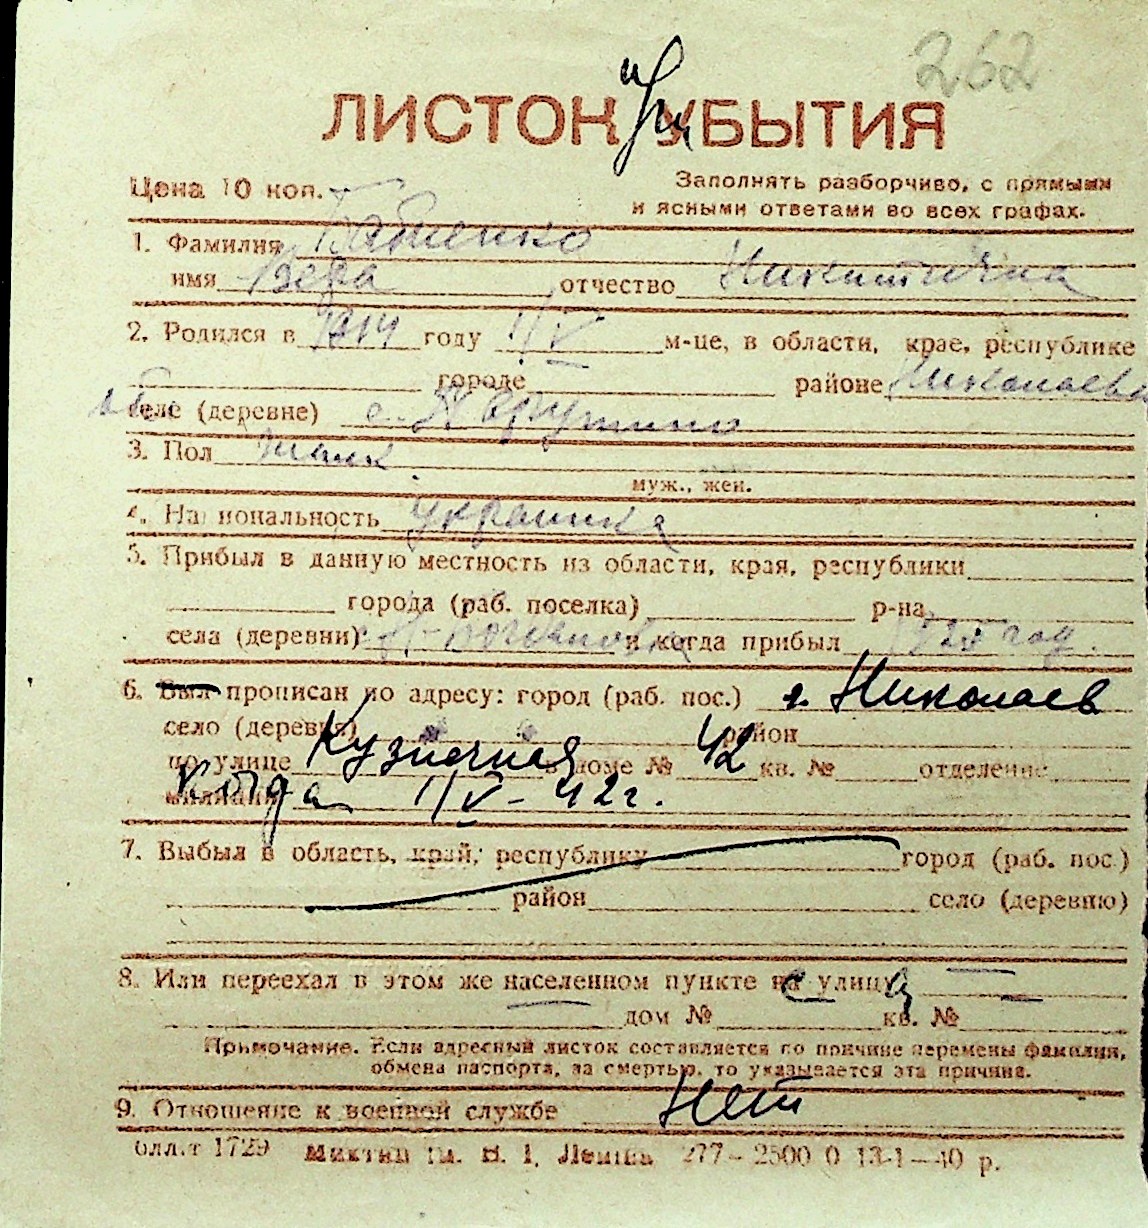 262
ЛИСТОК при УБЫТИЯ
Цена 10 коп.
Заполнять разборчиво, с прямыми
и ясными ответами во всех графах.
1. Фамилия Бабченко
имя Вера отчество Никитична
2. Родился в 1914 году 1/V м-це, в области, крае, республике
городе районе Николаевск
обл селе (деревне) с. Парутино
3. Пол женск
муж., жен.
4. Национальность украинка
5. Прибыл в данную местность из области, края, республики
города (раб. поселка) р-на
села (деревни) и когда прибыл год.
6. Был прописан по адресу: город (раб. пос.) г. Николаев
село (деревня) район
по улице Кузнечная в доме № 42 кв. № отделение
милиции Когда 1/V-42г.
7. Выбыл в область, край, республику город (раб. пос.)
район село (деревню)
8. Или переехал в этом же населенном пункте на с улицу
дом № кв. №
Примечание. Если адресный листок составляется по причине перемены фамилии,
обмена паспорта, за смертью, то указывается эта причина.
9. Отношение к военной службе Нет
1729 Ленина 277—2500 0 13-1—40 р.